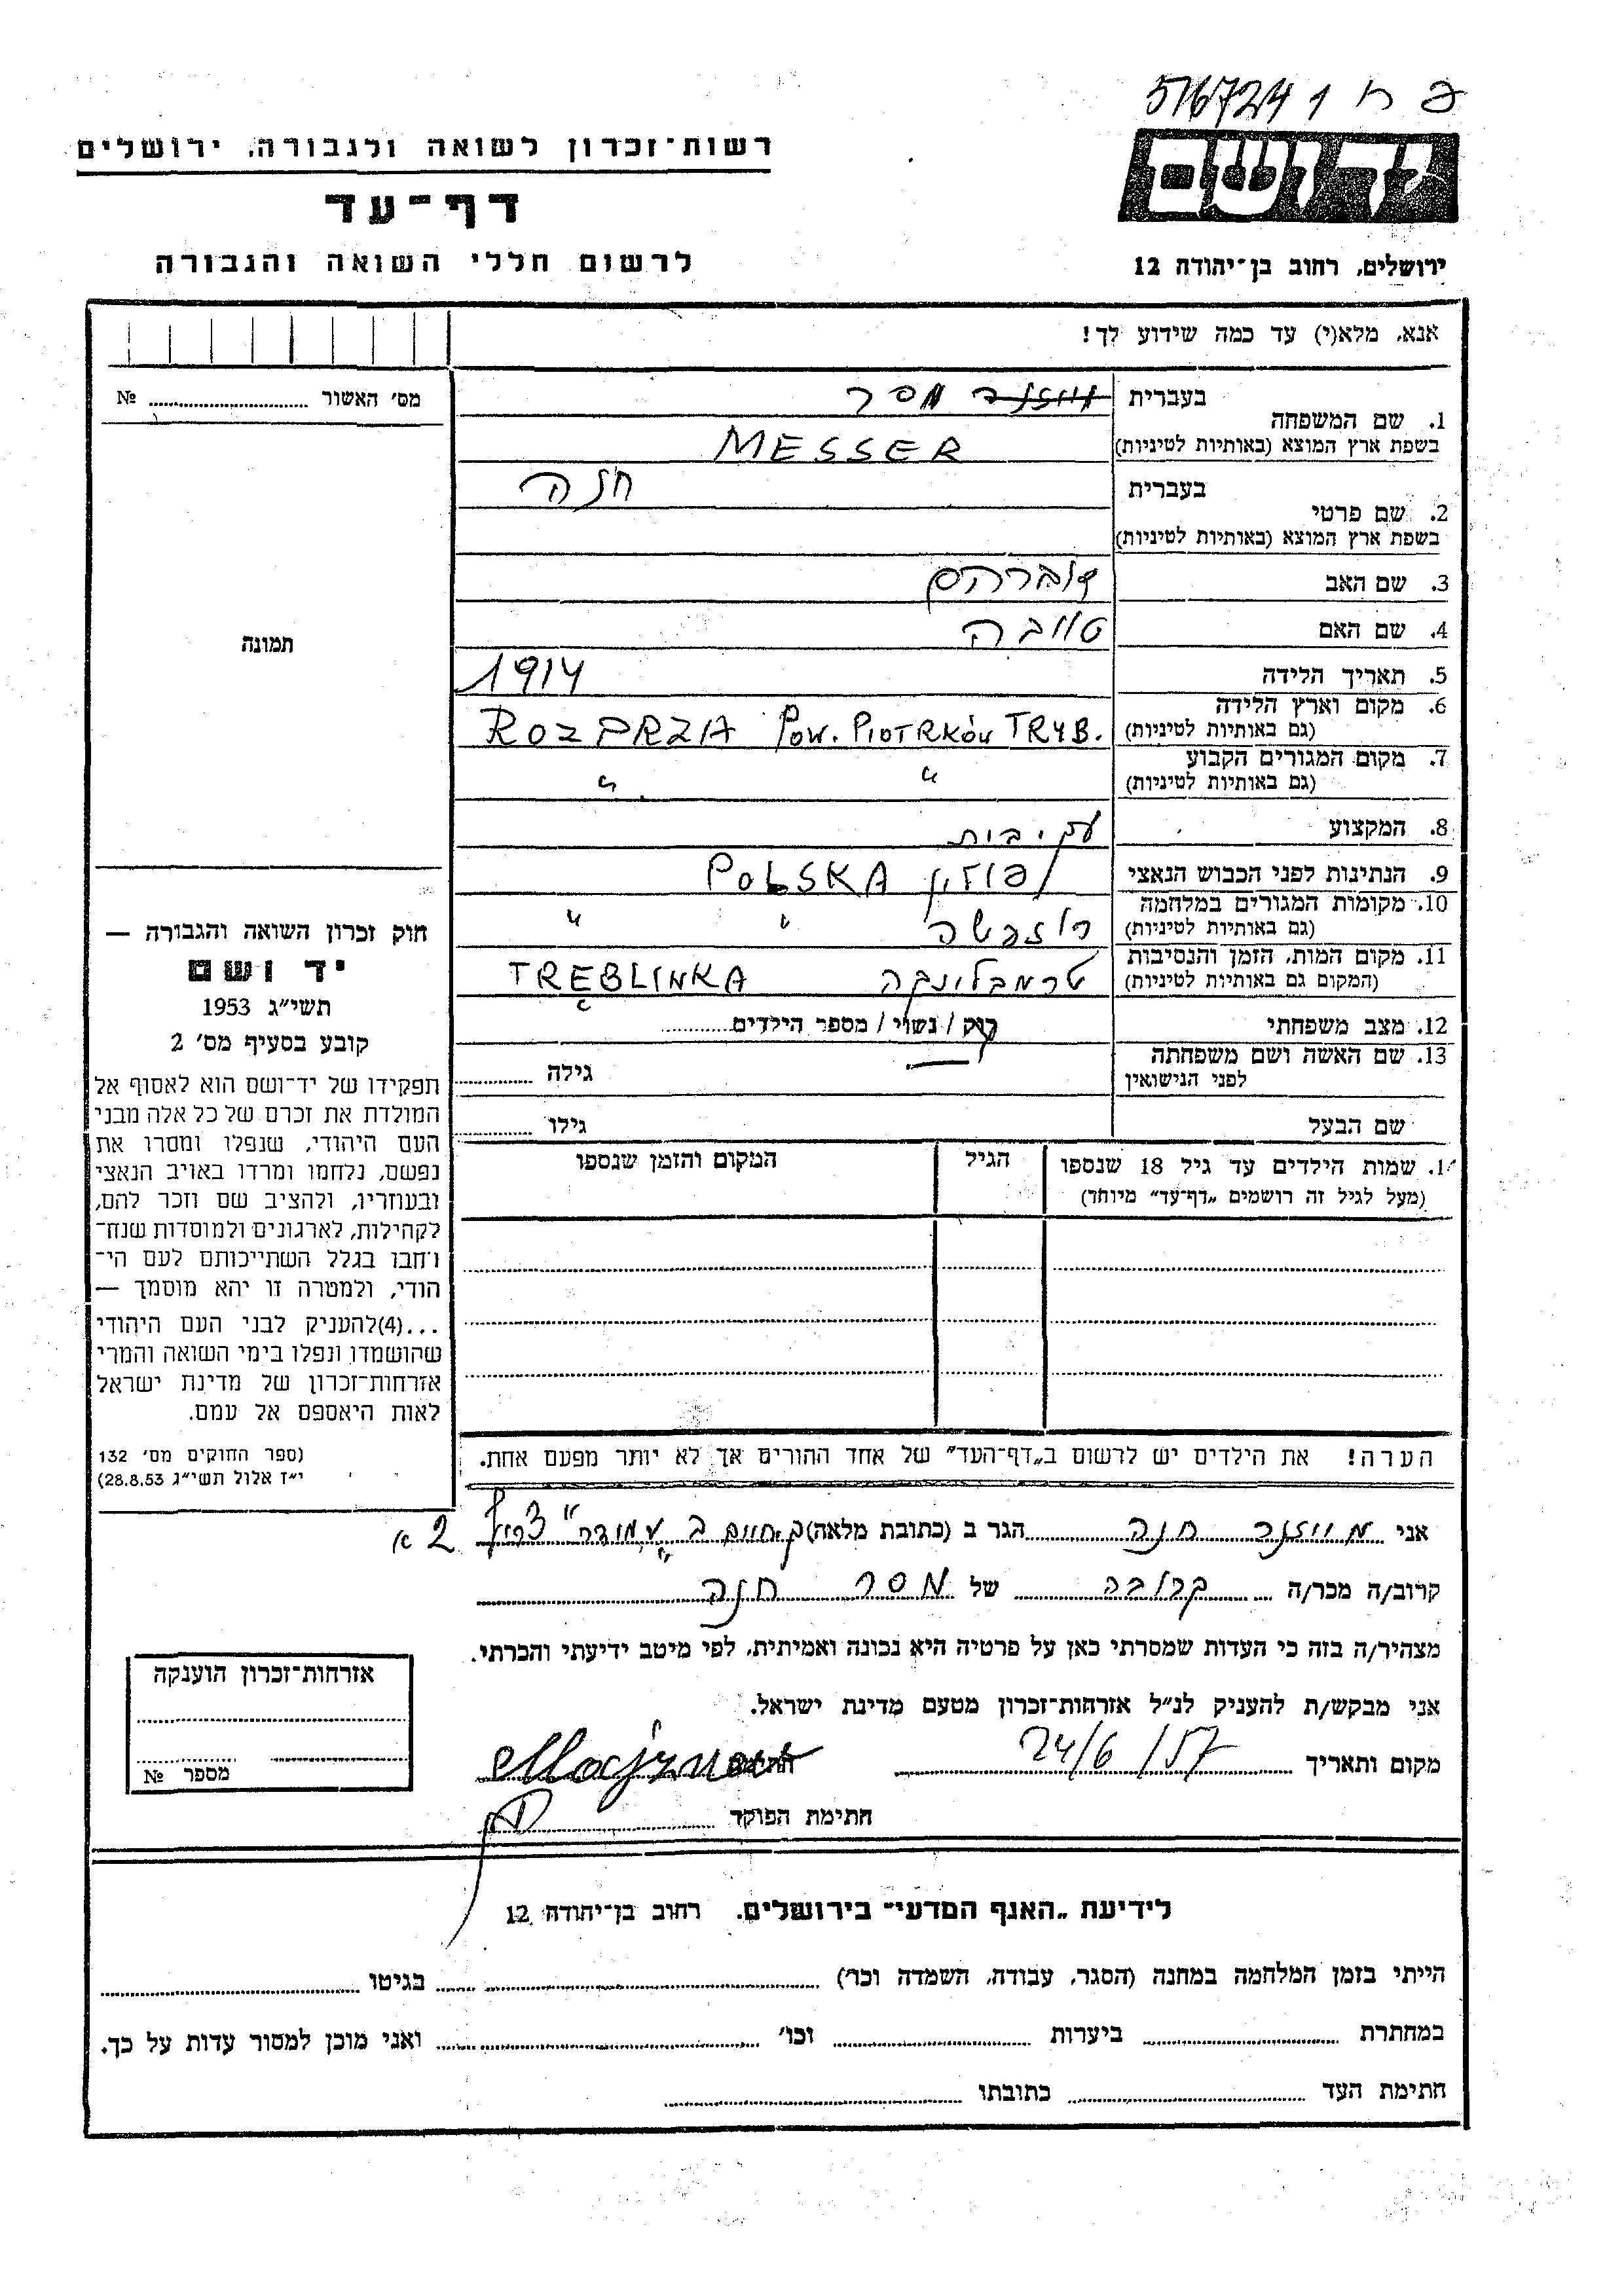 פ ח 1 516724
יד ושם
ירושלים, רחוב בן־יהודה 12
רשות־זכרון לשואה ולגבורה, ירושלים
דף־עד
לרשום חללי השואה והגבורה
אנא, מלא(י) עד כמה שידוע לך!
מס׳ האשור № 
1. שם המשפחה בעברית מסר
בשפת ארץ המוצא (באותיות לטיניות) MESSER
2. שם פרטי בעברית חנה
בשפת ארץ המוצא (באותיות לטיניות)
3. שם האב אברהם
4. שם האם טובה
5. תאריך הלידה 1914
6. מקום וארץ הלידה
(גם באותיות לטיניות) ROZPRZA Pow. PIOTRKÓW TRYB.
7. מקום המגורים הקבוע
(גם באותיות לטיניות) " "
8. המקצוע עק. בית
9. הנתינות לפני הכבוש הנאצי פולין POLSKA
10. מקומות המגורים במלחמה
(גם באותיות לטיניות) " "
11. מקום המות, הזמן והנסיבות
(המקום גם באותיות לטיניות) טרמבלינקה TRĘBLINKA
12. מצב משפחתי רוק / נשוי / מספר הילדים
13. שם האשה ושם משפחתה
לפני הנישואין גילה
שם הבעל גילו
14. שמות הילדים עד גיל 18 שנספו הגיל המקום והזמן שנספו
(מעל לגיל זה רושמים „דף־עד״ מיוחד)
הערה! את הילדים יש לרשום ב„דף־העד״ של אחד ההורים אך לא יותר מפעם אחת.
תמונה
חוק זכרון השואה והגבורה —
יד ושם
תשי״ג 1953
קובע בסעיף מס׳ 2
תפקידו של יד־ושם הוא לאסוף אל
המולדת את זכרם של כל אלה מבני
העם היהודי, שנפלו ומסרו את
נפשם, נלחמו ומרדו באויב הנאצי
ובעוזריו, ולהציב שם וזכר להם,
לקהילות, לארגונים ולמוסדות שנח־
רבו בגלל השתייכותם לעם הי־
הודי, ולמטרה זו יהא מוסמך —
...(4)להעניק לבני העם היהודי
שהושמדו ונפלו בימי השואה והמרי
אזרחות־זכרון של מדינת ישראל
לאות היאספם אל עמם.
(ספר החוקים מס׳ 132
י״ז אלול תשי״ג 28.8.53)
אני מייזנר חנה הגר ב (כתובת מלאה) צריף 2 א
קרוב/ה מכר/ה קרובה של מסר חנה
מצהיר/ה בזה כי העדות שמסרתי כאן על פרטיה היא נכונה ואמיתית, לפי מיטב ידיעתי והכרתי.
אני מבקש/ת להעניק לנ״ל אזרחות־זכרון מטעם מדינת ישראל.
מקום ותאריך 24/6/57
חתימת הפוקד
אזרחות־זכרון הוענקה
מספר №
לידיעת „האגף המדעי״ בירושלים, רחוב בן־יהודה 12
הייתי בזמן המלחמה במחנה (הסגר, עבודה, השמדה וכו׳) בגיטו
במחתרת ביערות וכו׳ ואני מוכן למסור עדות על כך.
חתימת העד כתובתו